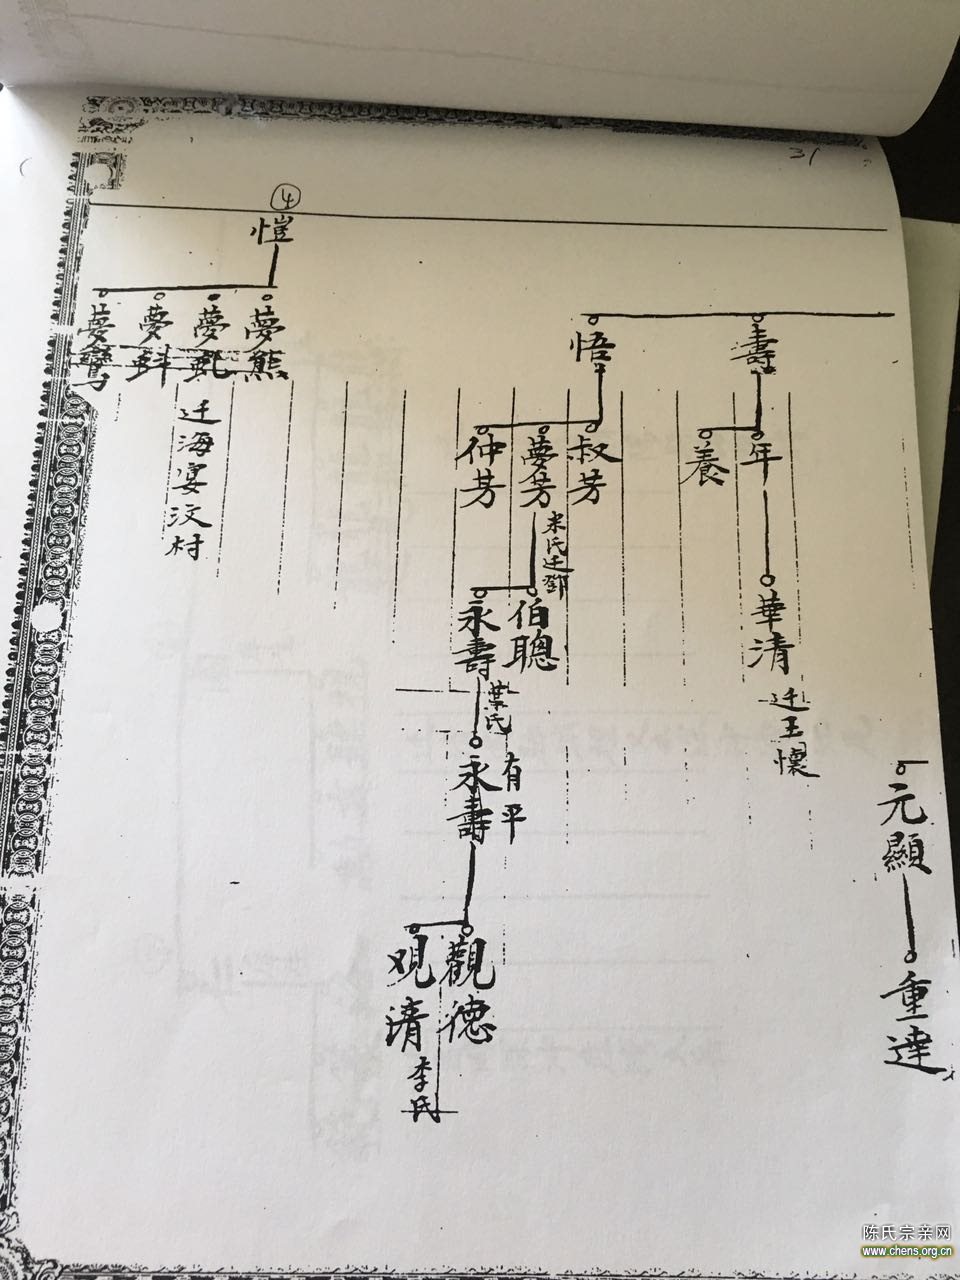 31
④
愷
夢熊
夢虬
夢蚪
夢鸞
迁海宴汶村
壽
悟
年
養
叔芳
夢芳
仲芳
宋氏迁鄧
華清
迁王懷
伯聰
永壽
葉氏
有平
永壽
觀德
观清
李氏
元顯
重達
陈氏宗亲网
www.chens.org.cn